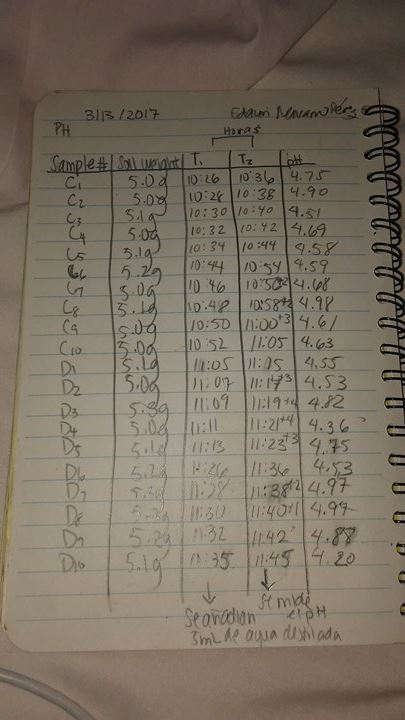 3/13/2017
PH
Horas
Sample# Soil weight T1 T2 pH
C1 5.0g 10:26 10:36 4.75
C2 5.0g 10:28 10:38 4.90
C3 5.1g 10:30 10:40 4.51
C4 5.0g 10:32 10:42 4.69
C5 5.1g 10:34 10:44 4.58
C6 5.2g 10:44 10:54 4.59
C7 5.0g 10:46 4.68
C8 5.1g 10:48 10:58+2 4.98
C9 5.0g 10:50 11:00+3 4.61
C10 5.0g 10:52 11:05 4.63
D1 5.1g 11:05 11:15 4.55
D2 5.0g 11:07 11:17+3 4.53
D3 5.3g 11:09 11:19+4 4.82
D4 5.0g 11:11 11:21+4 4.36
D5 5.1g 11:13 11:23+3 4.75
D6 5.2g 11:26 11:36 4.53
D7 11:28 11:38+2 4.97
D8 11:30 11:40+1 4.99
D9 5.2g 11:32 11:42 4.88
D10 5.1g 11:35 11:45 4.20
Se añadían se mide
3mL de agua destilada el pH